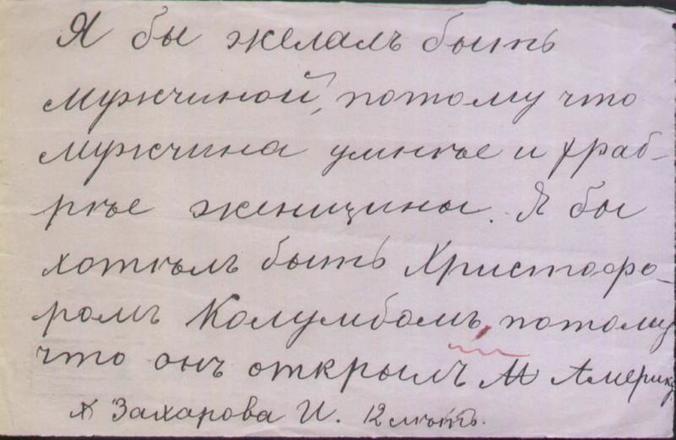 Я бы желалъ быть
мужчиной, потому что
мужчина умнѣе и храб-
рѣе женщины. Я бы
хотѣлъ быть Христофо-
ромъ Колумбомъ, потому
что онъ открылъ Америку
Захарова И. 12 лѣтъ.